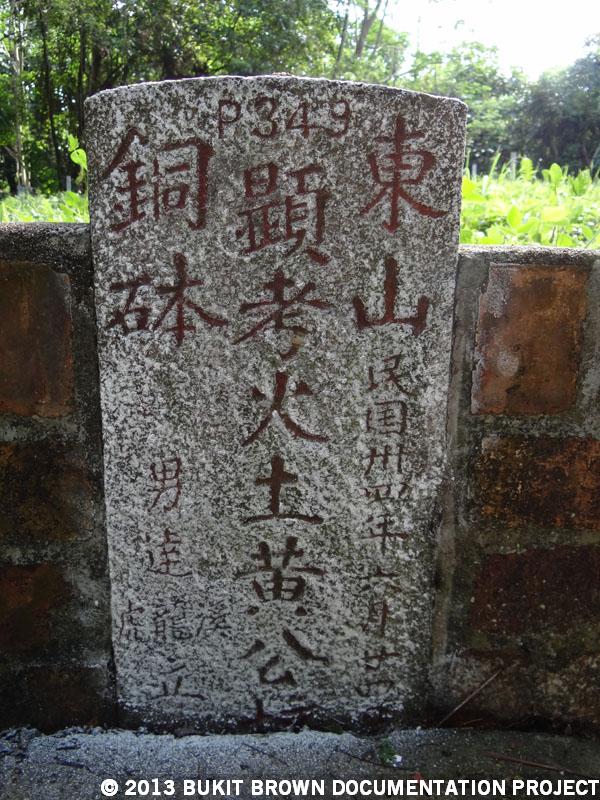 P349
東山
民国卅四年六月廿
顯考火土黃公
銅砵
男達
溪
龍立
虎
© 2013 BUKIT BROWN DOCUMENTATION PROJECT